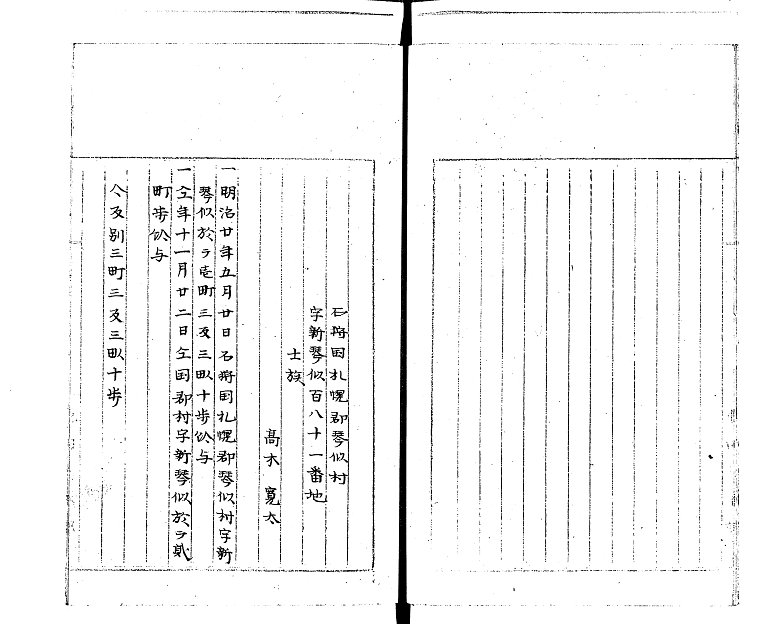 石狩国札幌郡琴似村
字新琴似百八十一番地
士族
高木寛太
一明治廿年五月廿日石狩国札幌郡琴似村字新
琴似於ラ壱町三反三畝十歩給与
一仝年十一月廿二日仝国郡村字新琴似於ラ貳
町歩給与
反別三町三反三畝十歩